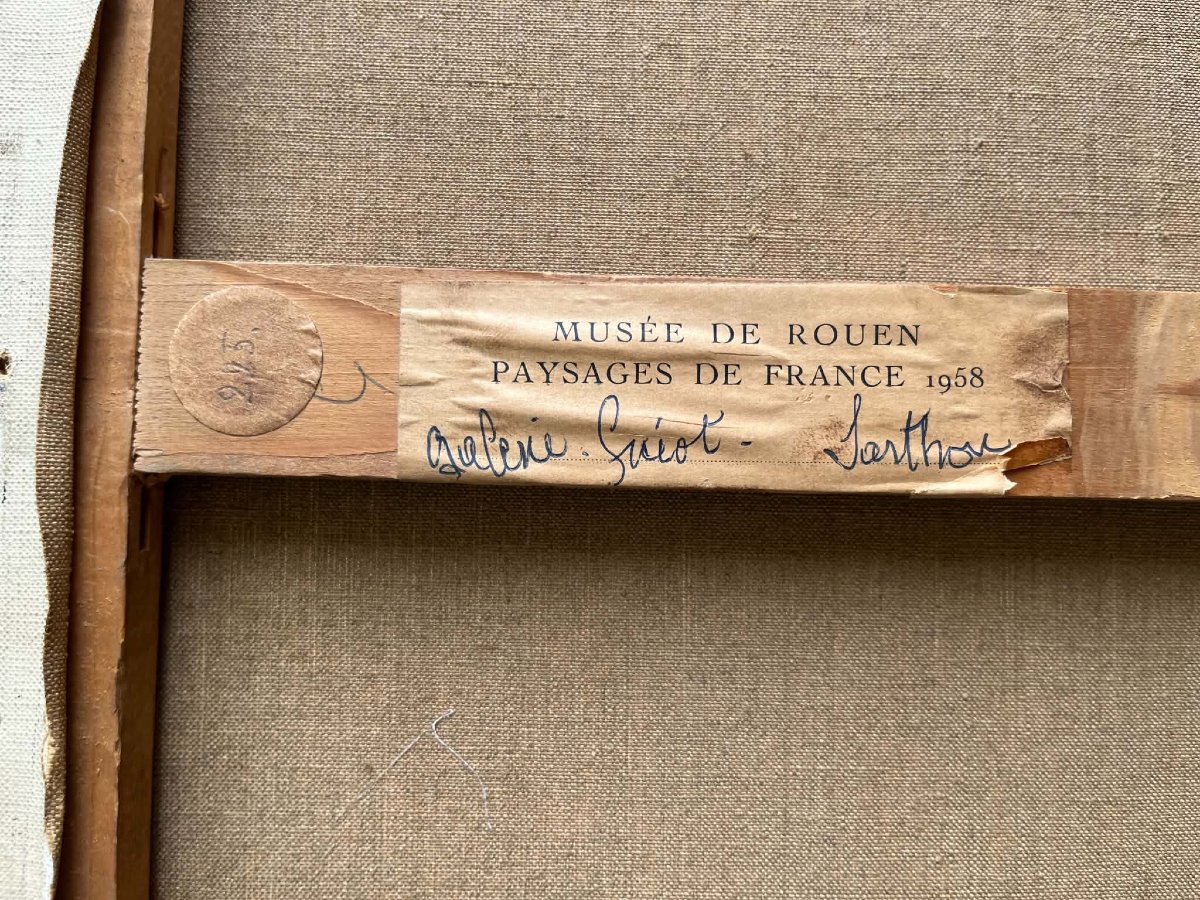 MUSÉE DE ROUEN
PAYSAGES DE FRANCE 1958
Galerie Guiot - Sarthou
245.